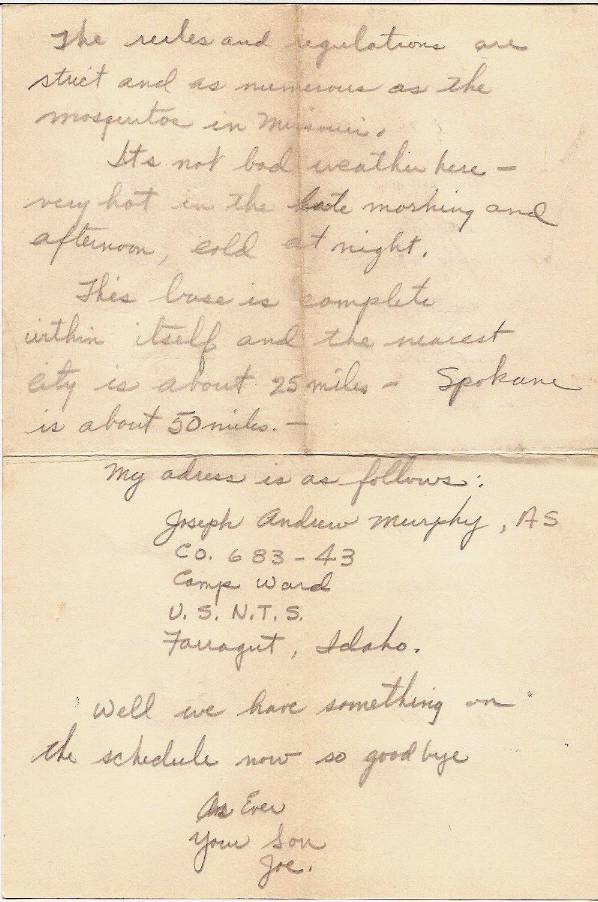 The rules and regulations are
strict and as numerous as the
mosquitos in Missouri.
Its not bad weather here –
very hot in the late morning and
afternoon, cold at night.
This base is complete
within itself and the nearest
city is about 25 miles – Spokane
is about 50 miles. –
My adress is as follows:
Joseph Andrew Murphy, AS
Co. 683-43
Camp Ward
U.S.N.T.S.
Farragut, Idaho.
Well we have something on
the schedule now so goodbye
As Ever
Your Son
Joe.